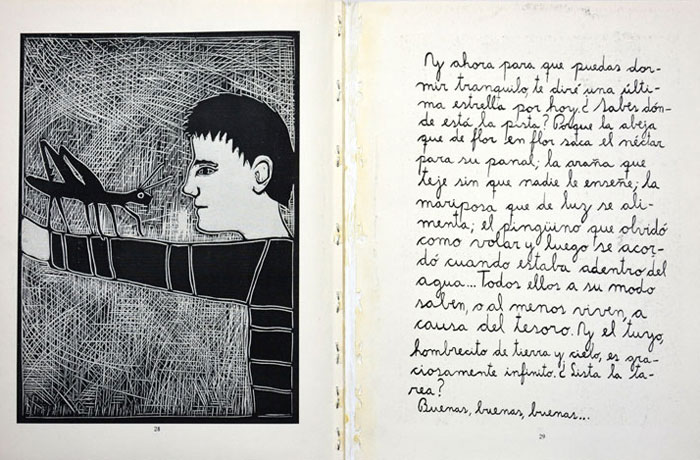 Y ahora para que puedas dor-
mir tranquilo, te diré una últi-
ma estrella por hoy. ¿Sabes dón-
de está la pista? Porque la abeja
que de flor en flor saca el néctar
para su panal; la araña que
teje sin que nadie le enseñe; la
mariposa que de luz se ali-
menta; el pingüino que olvidó
como volar y luego se acor-
dó cuando estaba adentro del
agua... Todos ellos a su modo
saben, o al menos viven, a
causa del tesoro. Y el tuyo,
hombrecito de tierra y cielo, es gra-
ciosamente infinito. ¿Lista la ta-
rea?
Buenas, buenas, buenas...
28
29